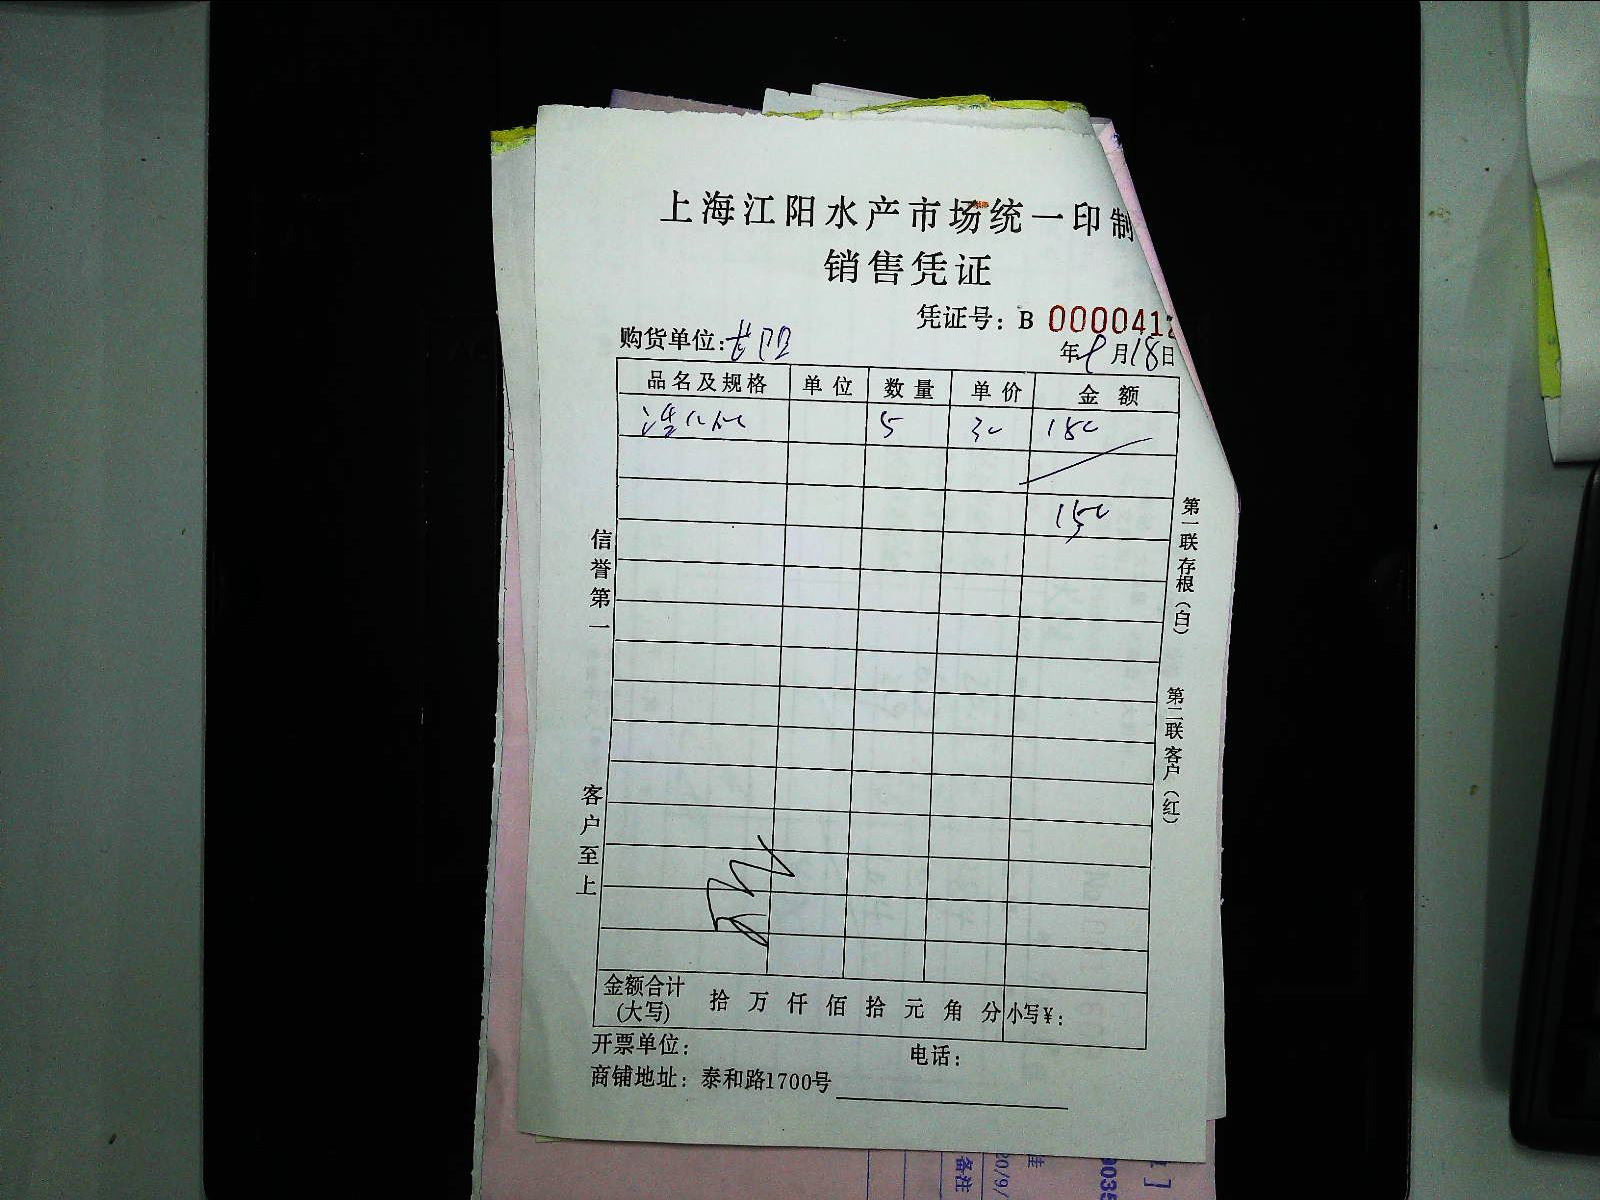 上海江阳水产市场统一印制
销售凭证
凭证号: B 000041
购货单位:
年9月18日
品名及规格 单位 数量 单价 金额
5 30 150
150
信誉第一
客户至上
第一联存根(白)
第二联客户(红)
金额合计(大写) 拾 万 仟 佰 拾 元 角 分 小写¥:
开票单位: 电话:
商铺地址: 泰和路1700号
备注
20/9/
0035